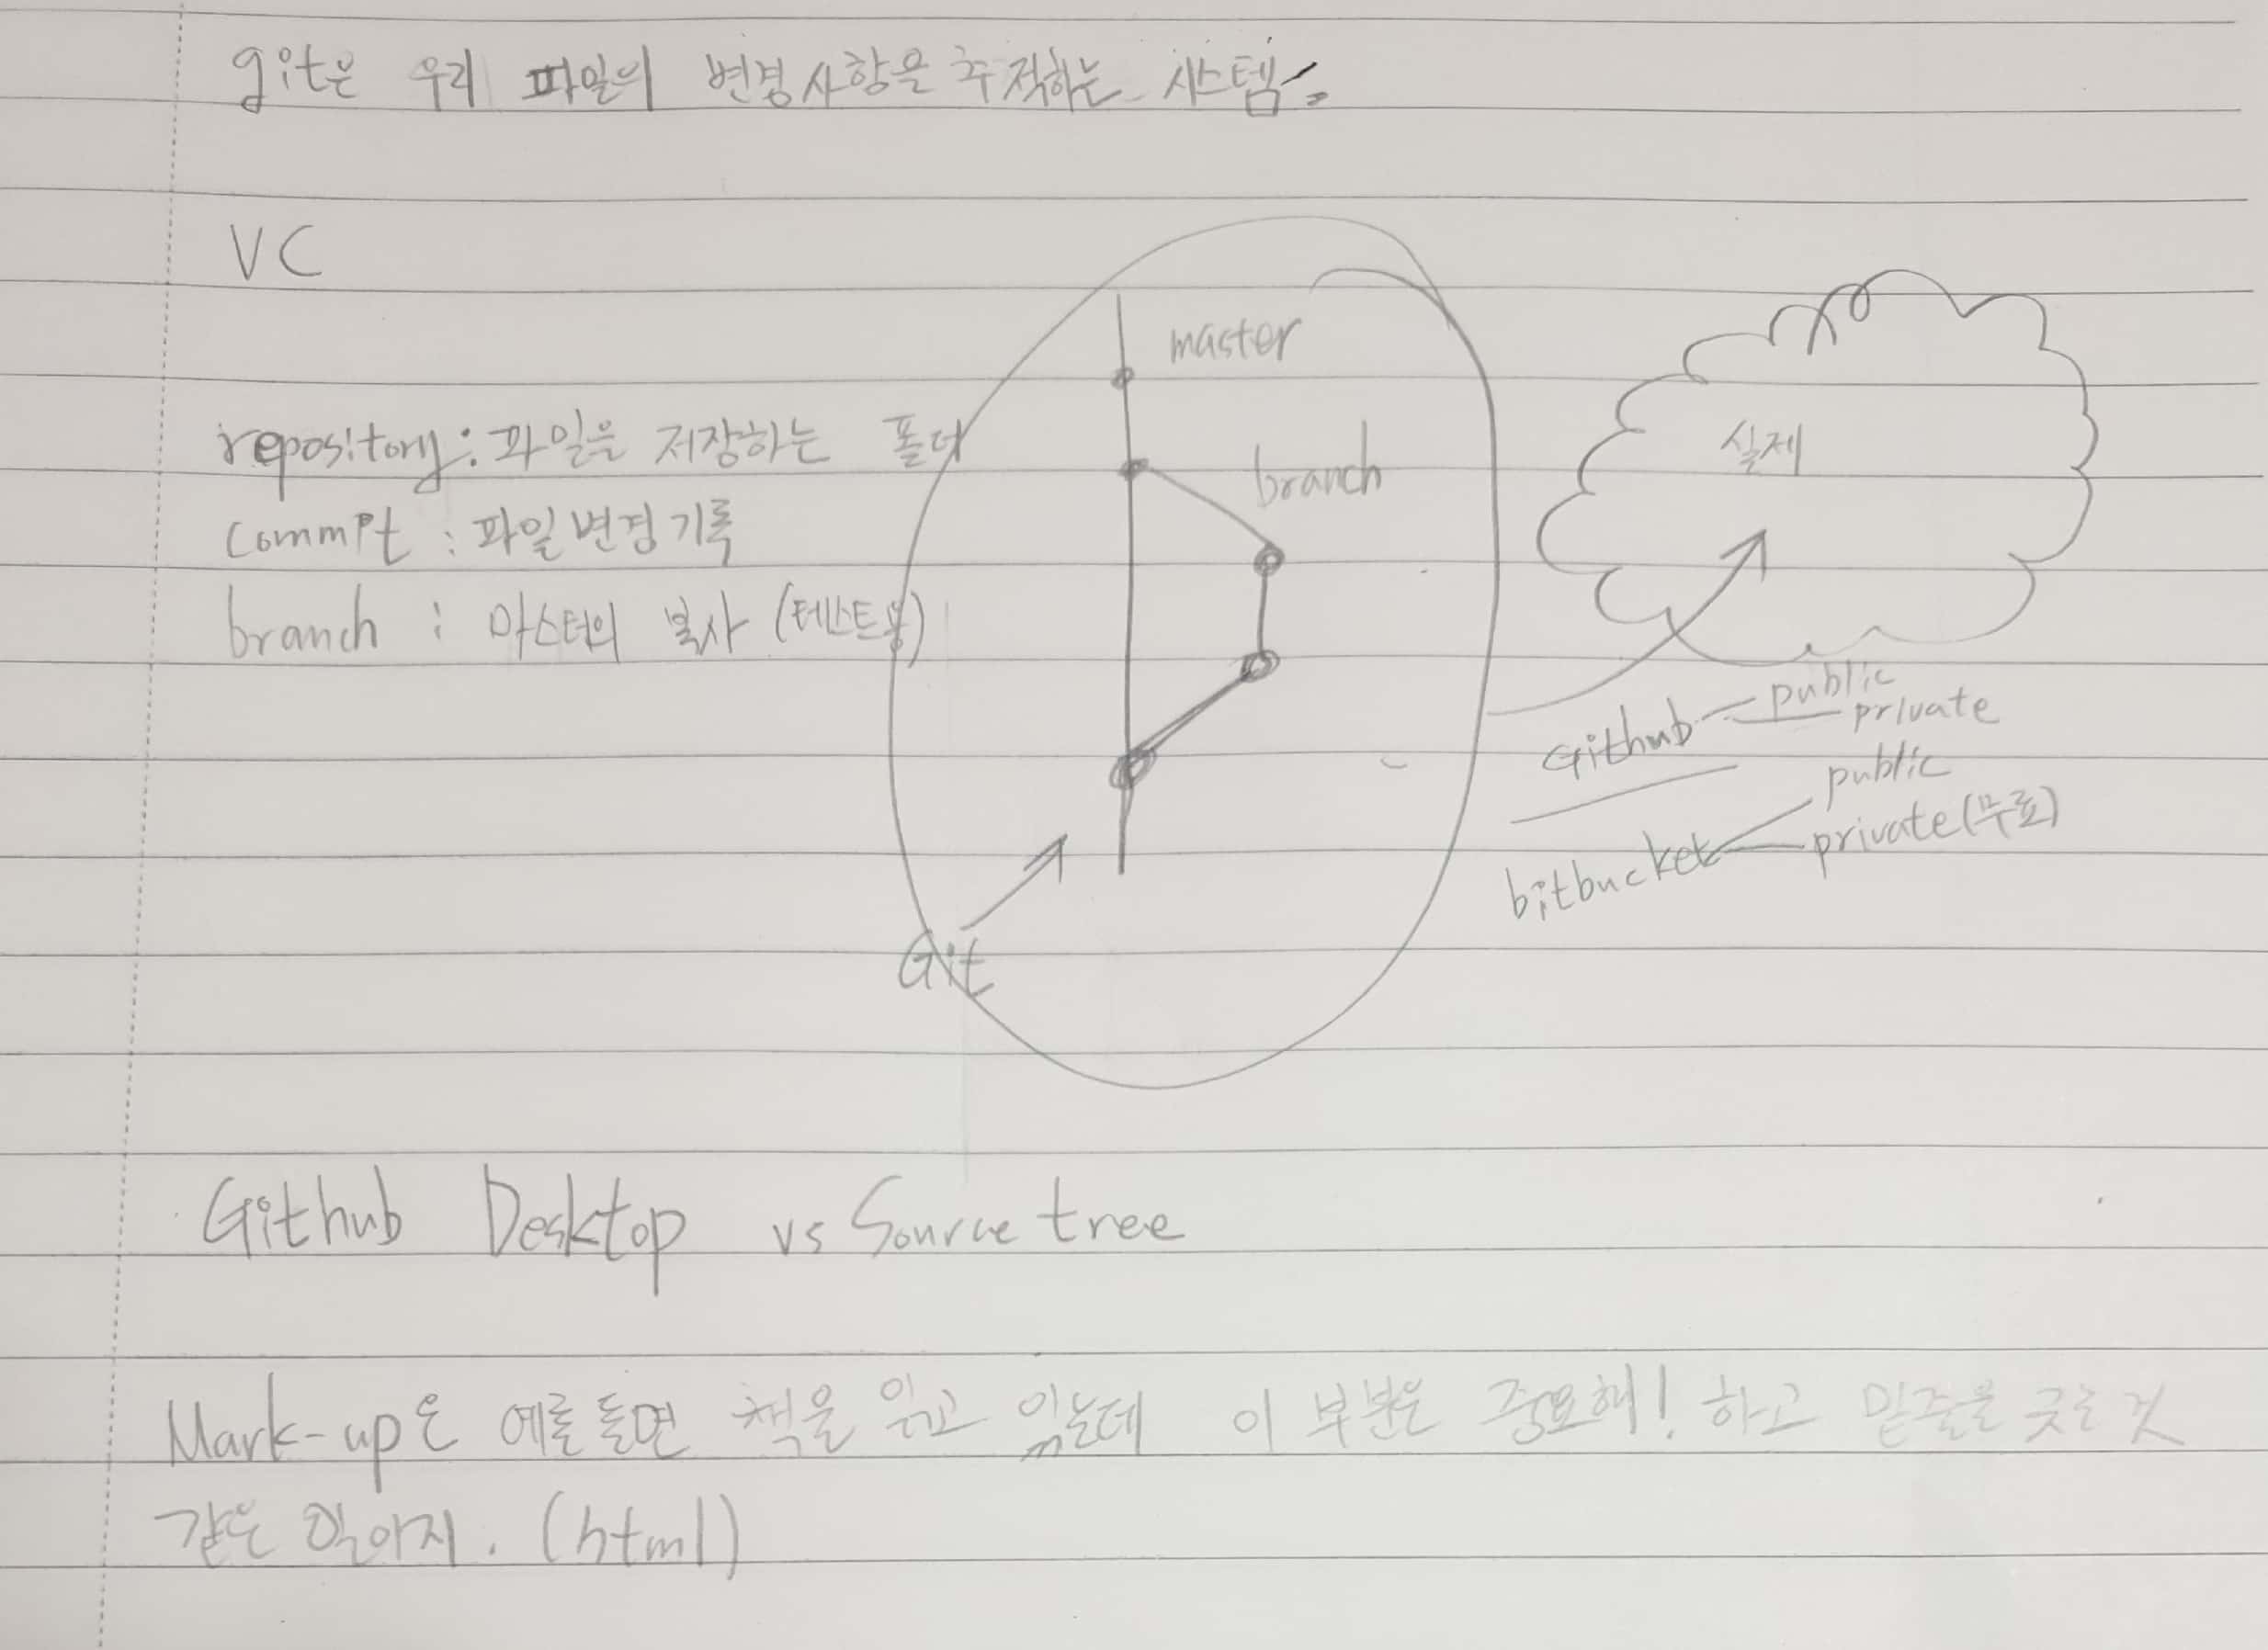 git은 우리 파일의 변경사항을 추적하는 시스템
VC
master
repository : 파일을 저장하는 폴더
branch
실제
commit : 파일변경기록
branch : 마스터의 복사 (테스트용)
Github public
private
bitbucket public
private (무료)
Git
Github Desktop vs Source tree
Mark-up은 예를들면 책을 읽고 있는데 이 부분은 중요해! 하고 밑줄을 긋는 것
같은 의미지. (html)